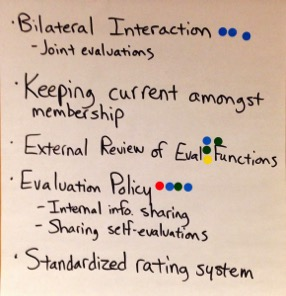 · Bilateral Interaction
- Joint evaluations
· Keeping current amongst
membership
· External Review of Eval Functions
· Evaluation Policy
- Internal info. sharing
- Sharing self-evaluations
· Standardized rating system